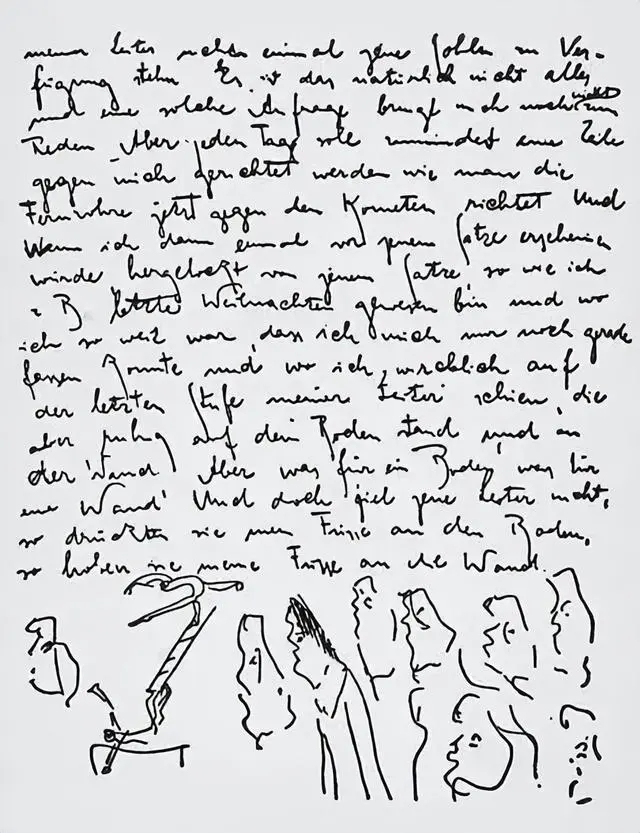 meiner Leiter nicht einmal jene Sohlen zur Ver-
fügung stehn Es ist das natürlich nicht alles
und eine solche Anfrage bringt mich noch nicht zum
Reden Aber jeden Tag soll zumindest eine Zeile
gegen mich gerichtet werden wie man die
Fernrohre jetzt gegen den Kometen richtet Und
wenn ich dann einmal vor jenem Satze erscheinen
würde hergelockt von jenem Satze, so wie ich
z B letzte Weihnachten gewesen bin und wo
ich so weit war, dass ich mich nur noch gerade
fassen konnte und wo ich wircklich auf
der letzten Stufe meiner Leiter schien, die
aber ruhig auf dem Boden stand und an
der Wand Aber was für ein Boden, was für
eine Wand! Und doch fiel jene Leiter nicht,
so drückten sie meine Füsse an den Boden,
so hoben sie meine Füsse an die Wand.